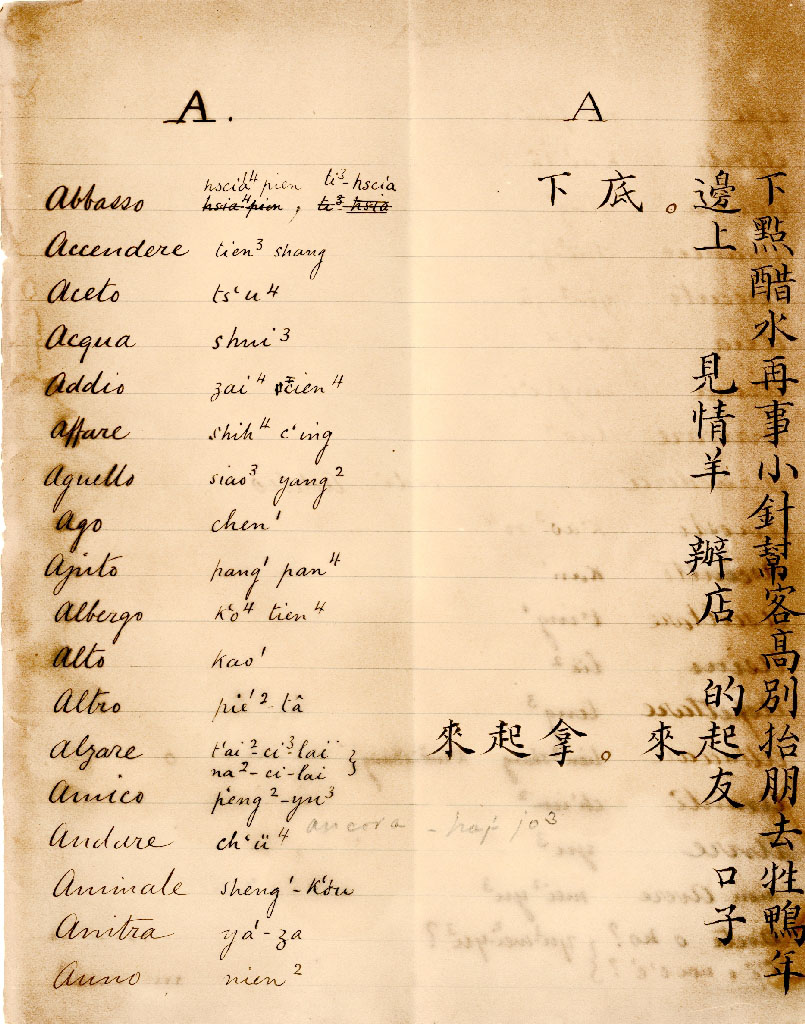 A. A
hscià⁴ pien ti³-hscia
Abbasso hsia⁴ pien, ti³-hsia 下邊。底下
Accendere tien³ shang 點上
Aceto ts‘u⁴ 醋
Acqua shui³ 水
Addio zai⁴ cien⁴ 再見
Affare shih⁴ c‘ing 事情
Agnello siao³ yang² 小羊
Ago chen¹ 針
Ajuto pang¹ pan⁴ 幫辦
Albergo k‘o⁴ tien⁴ 客店
Alto kao¹ 高
Altro pié²-tâ 別的
Alzare t‘ai²-ci³-laï 抬起來。拿起來
na²-ci-lai
Amico p‘eng²-yu³ 朋友
Andare ch‘ü⁴ 去
ancora - haj jo³
Animale sheng¹-k‘ou 牲口
Anitra ya¹-za 鴨子
Anno nien² 年